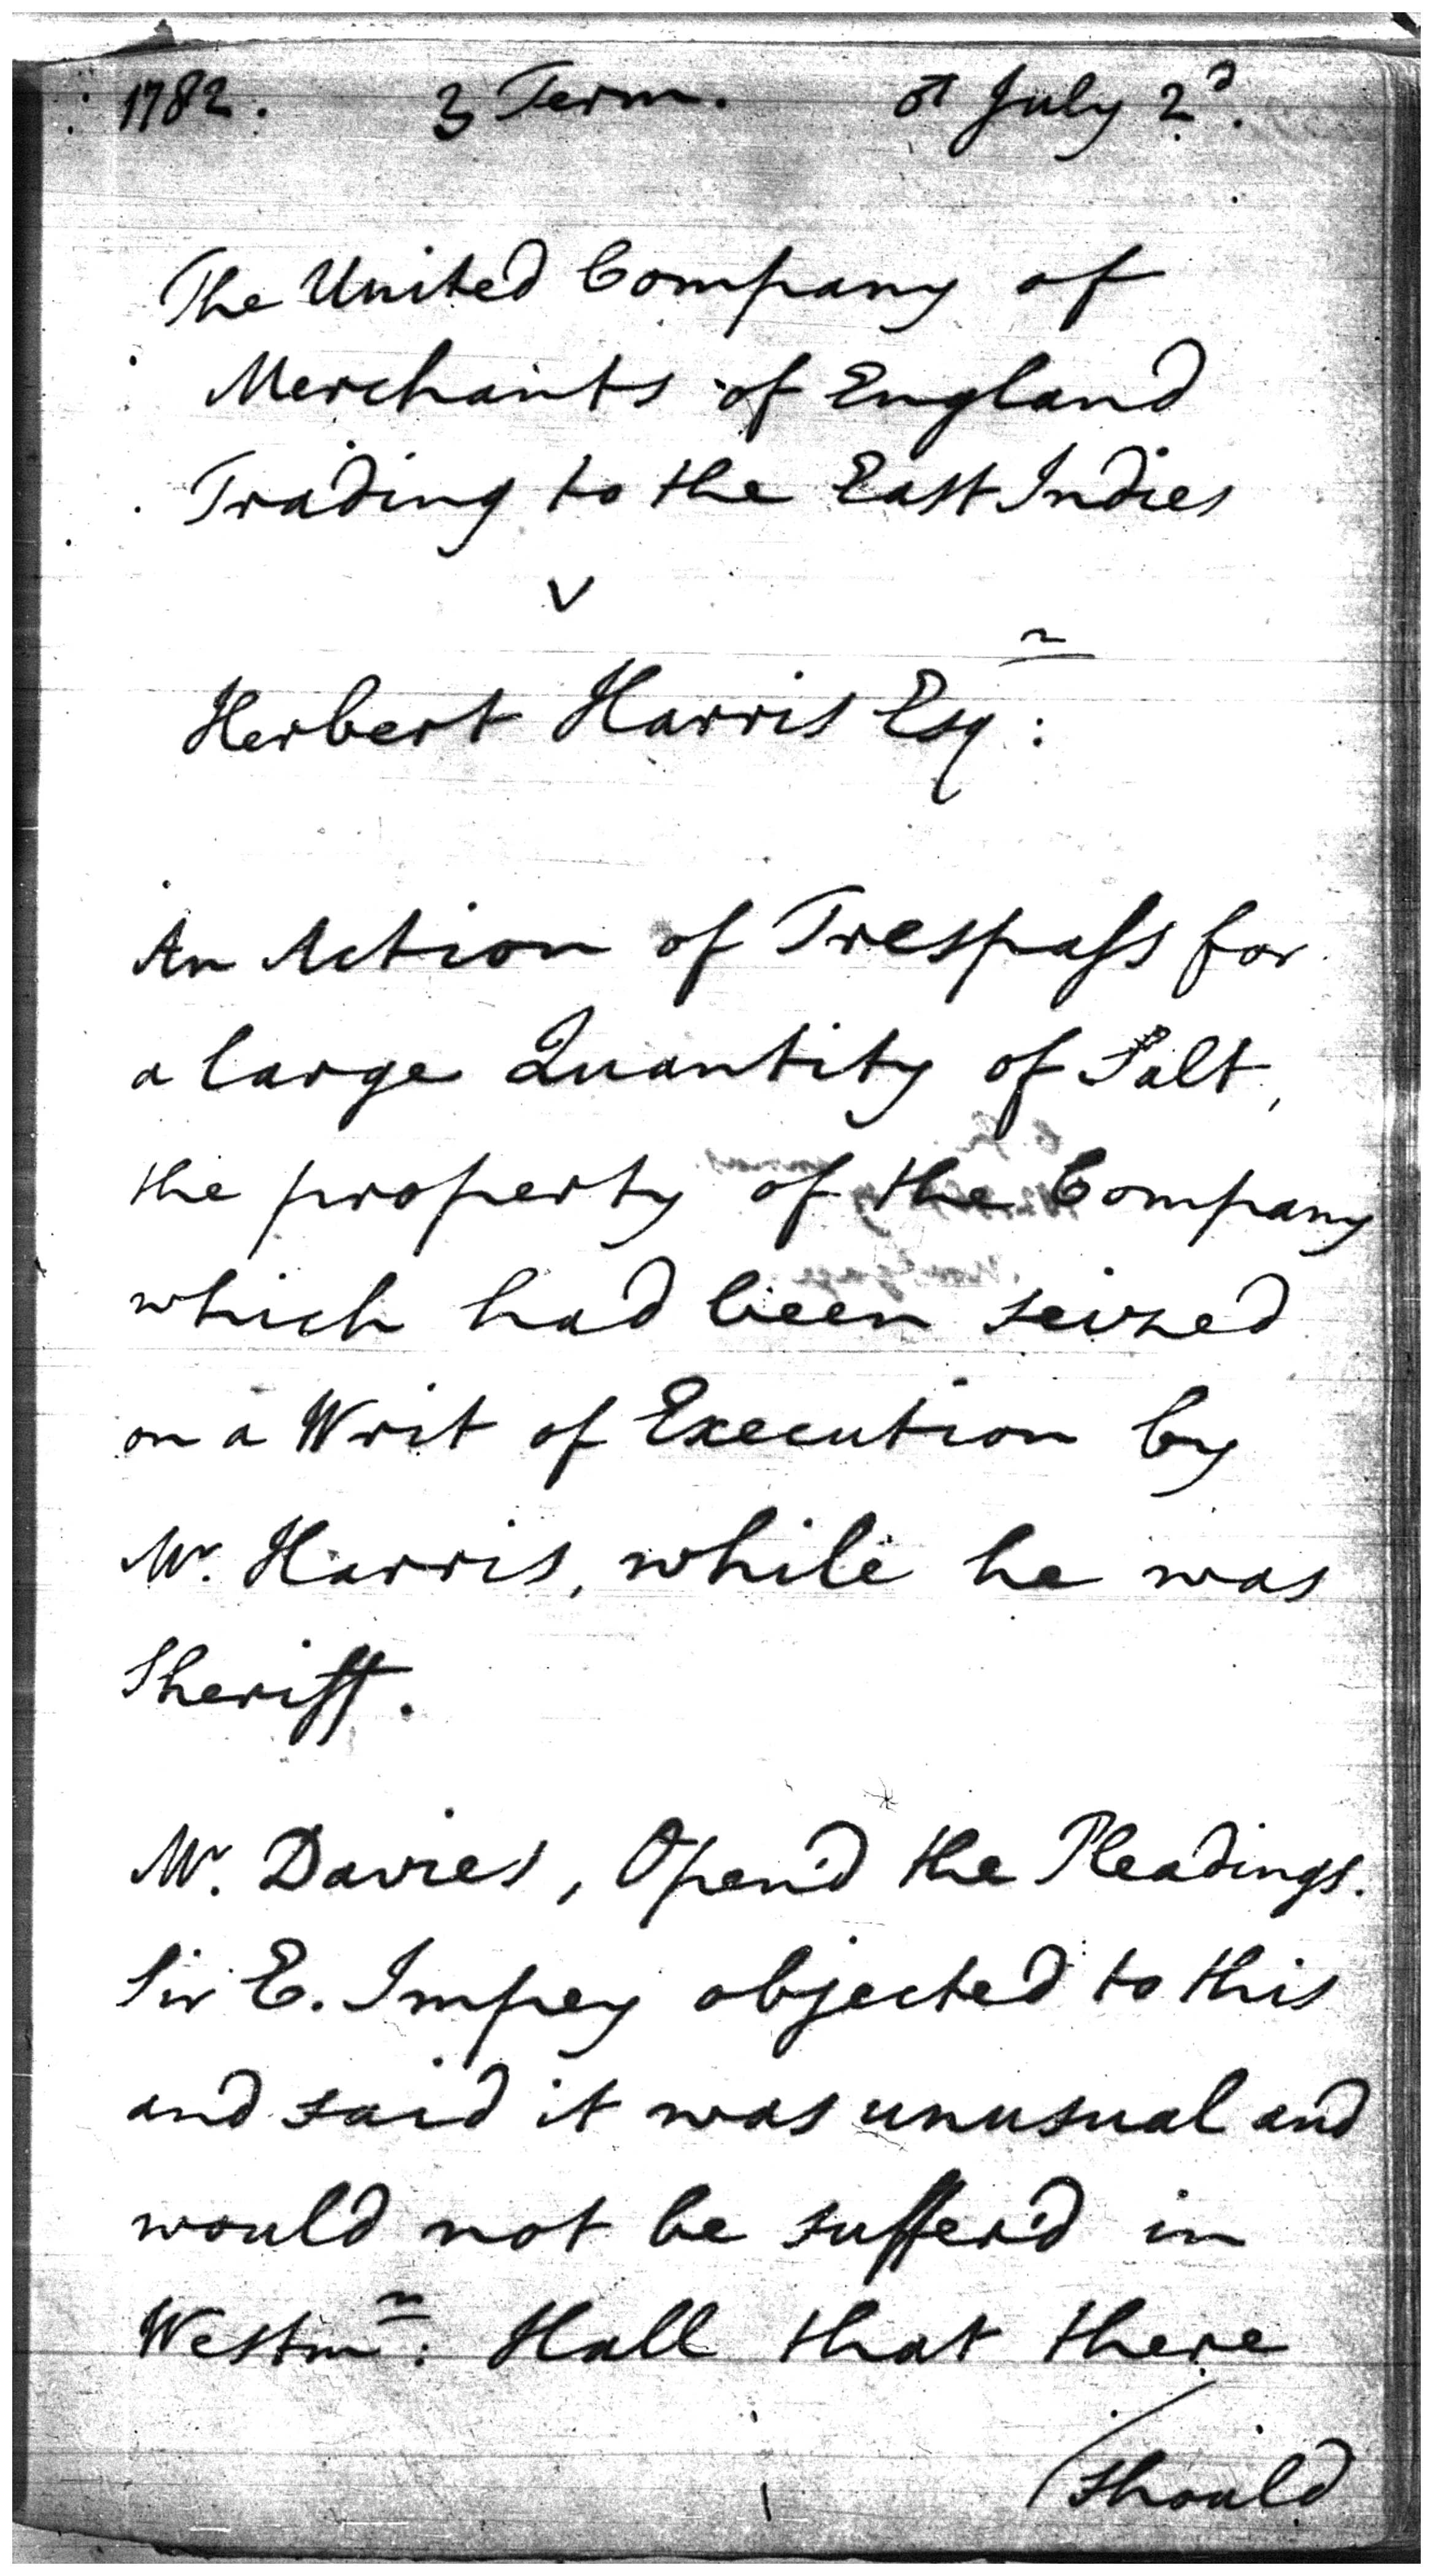 1782. 3 Term. July 2d.
The United Company of
Merchants of England
Trading to the East Indies
v
Herbert Harris Esqr:
An Action of Trespass for
a large Quantity of Salt,
the property of the Company
which had been seized
on a Writ of Execution by
Mr. Harris, while he was
Sheriff.
Mr. Davies, Open'd the Pleadings.
Sir E. Impey objected to this
and said it was unusual and
would not be suffer'd in
Westmr: Hall that there
should